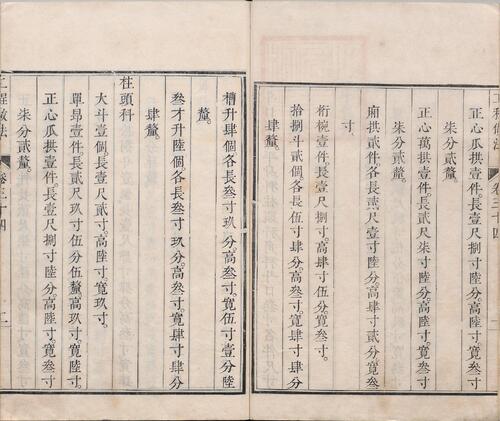 正心瓜拱壹件。長壹尺捌寸陸分。高陸寸。寬叁寸
柒分貳釐。
正心萬拱壹件。長貳尺柒寸陸分。高陸寸。寬叁寸
柒分貳釐。
廂拱貳件。各長壹尺壹寸陸分。高肆寸貳分。寬叁
寸。
桁椀壹件。長壹尺捌寸。高肆寸伍分。寬叁寸。
拾捌斗貳個。各長伍寸肆分。高叁寸。寬肆寸肆分
肆釐。
槽升肆個。各長叁寸玖分。高叁寸。寬伍寸壹分陸
釐。
叁才升陸個。各長叁寸玖分。高叁寸。寬肆寸肆分
肆釐。
柱頭科
大斗壹個。長壹尺貳寸。高陸寸。寬玖寸。
單昂壹件。長貳尺玖寸伍分伍釐。高玖寸。寬陸寸。
正心瓜拱壹件。長壹尺捌寸陸分。高陸寸。寬叁寸
工程做法 卷三十四 二